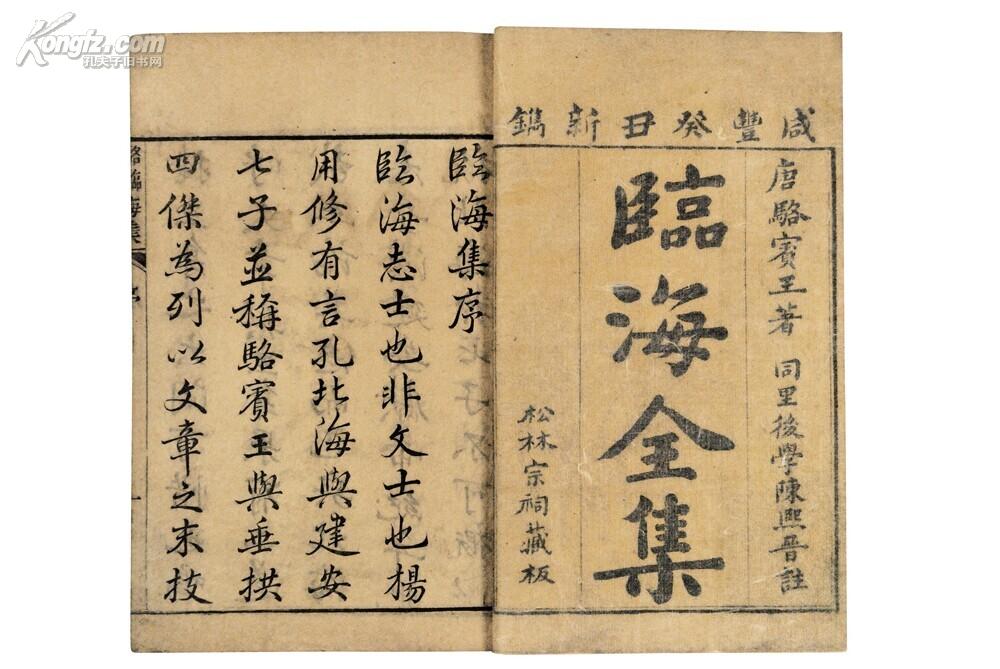 Kongfz.com
孔夫子旧书网
咸豐癸丑新鐫
唐駱賓王著 同里後學陳熙晉註
臨海全集
松林宗祠藏板
臨海集序
臨海志士也非文士也楊
用修有言孔北海與建安
七子並稱駱賓王與垂拱
四傑為列以文章之末技
駱臨海集 序 一